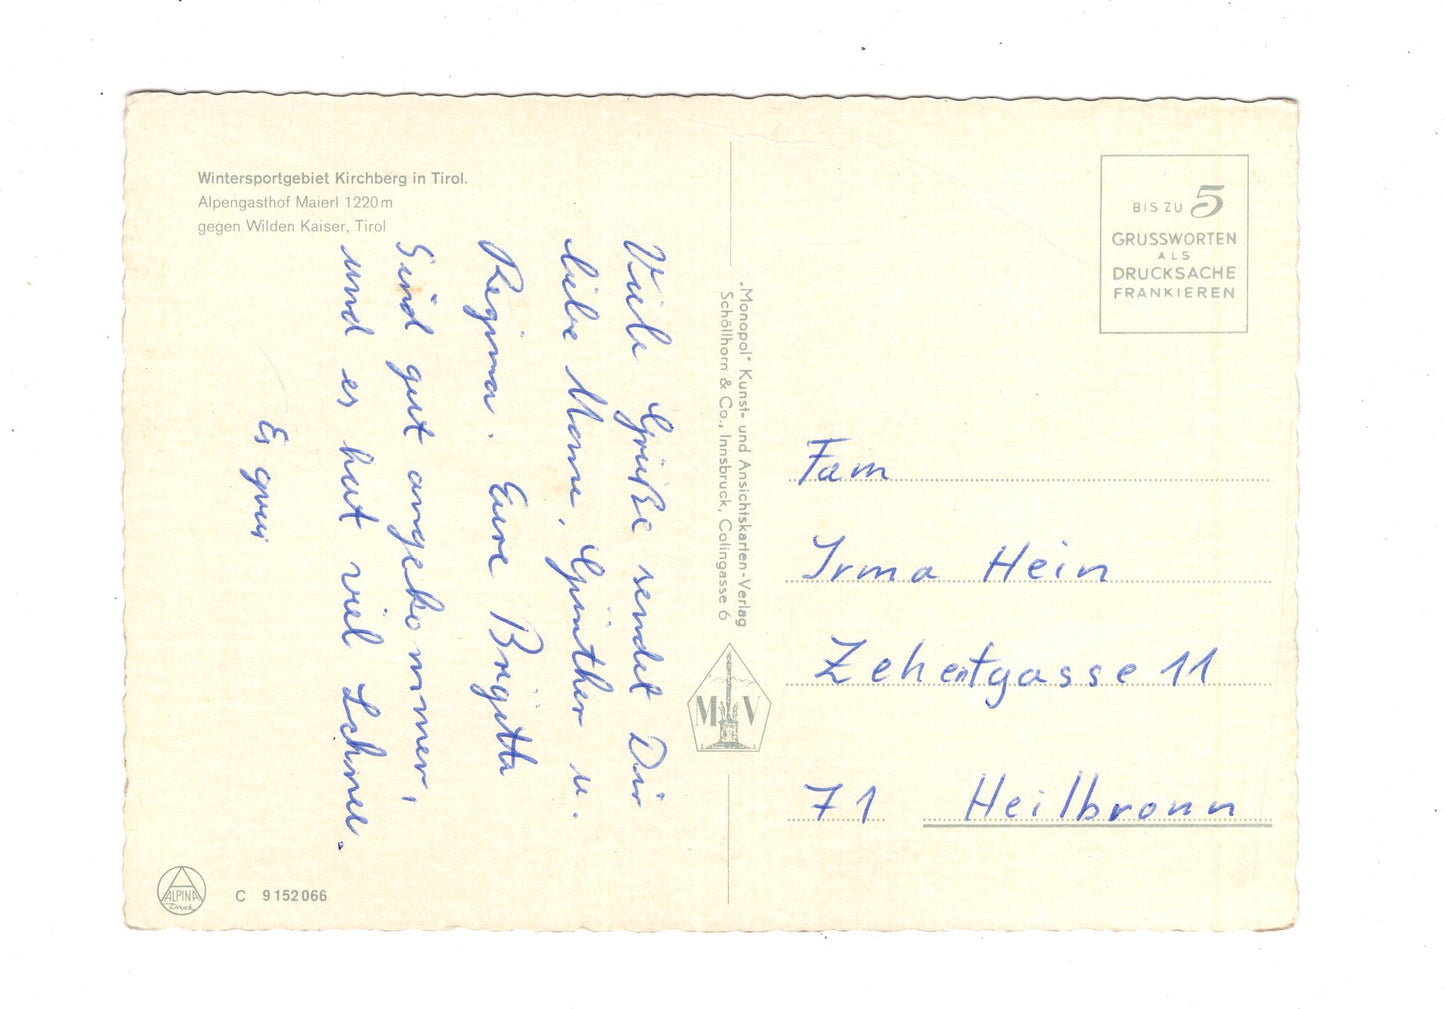 Wintersportgebiet Kirchberg in Tirol.
Alpengasthof Maierl 1220 m
gegen Wilden Kaiser, Tirol
Viele Grüße sendet Dir
liebe Mome, Günther u.
Regina. Eure Brigitte
Sind gut angekommen,
und es hat viel Schnee.
Es
C 9 152 066
ALPINA
Druck
„Monopol" Kunst- und Ansichtskarten-Verlag
Schöllhorn & Co., Innsbruck, Colingasse 6
M V
BIS ZU 5
GRUSSWORTEN
ALS
DRUCKSACHE
FRANKIEREN
Fam
Irma Hein
Zehentgasse 11
71 Heilbronn